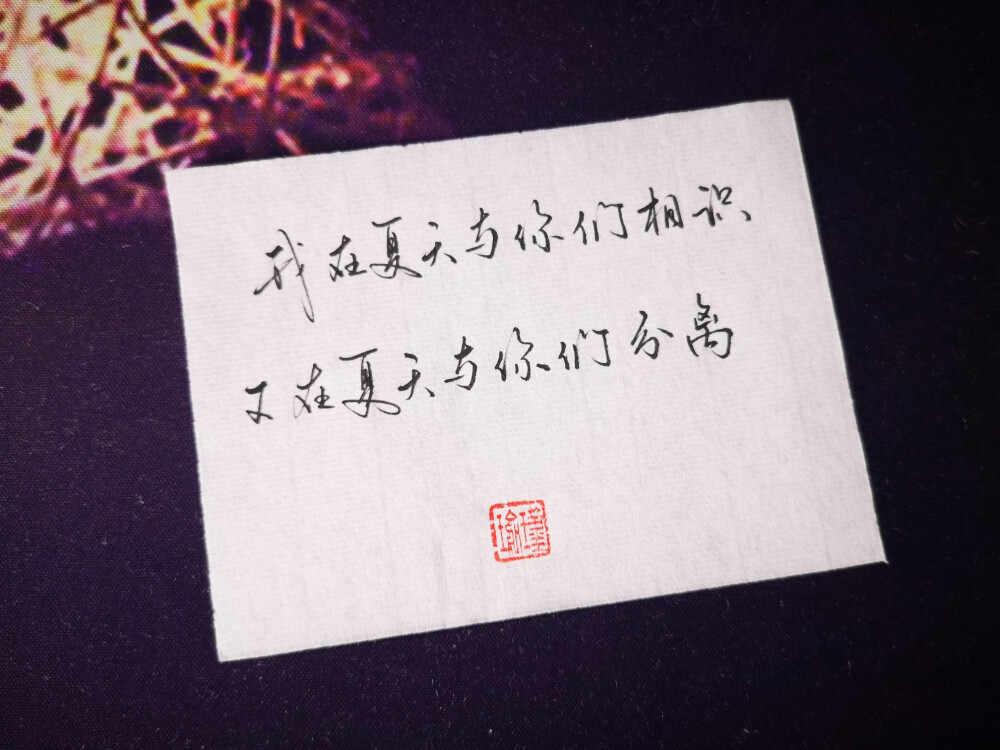 我在夏天与你们相识、
又在夏天与你们分离